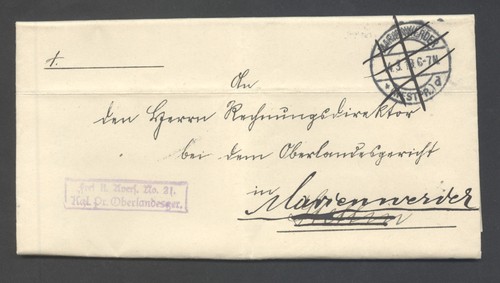 MARIENWERDER
6-7N.
(WESTPR.) d
An
den Herrn Rechnungsdirektor
bei dem Oberlandesgericht
in Marienwerder
Frei lt. Avers. No. 21.
Kgl. Pr. Oberlandesger.